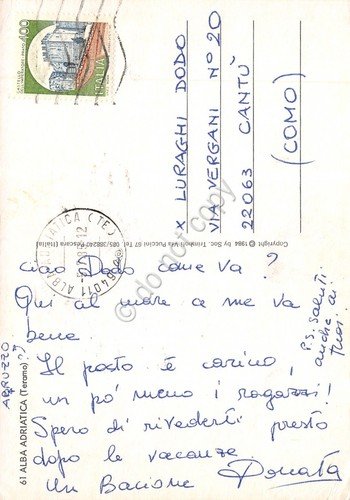 400
ITALIA
64011 ALBA ADRIATICA (TE)
x LURAGHI DODO
VIA VERGANI N° 20
22063 CANTÙ
(COMO)
Copyright © 1984 by Soc. Trinakria Via Puccini 97 Tel. 085/388240 Pescara (Italia)
do not copy
ciao Dodo come va?
Qui al mare a me va
bene.
Il posto è carino,
un po' meno i ragazzi!
Spero di rivederti presto
dopo le vacanze.
Un Bacione Donata
P.S. Saluti
anche ai
Tuoi.
ABRUZZO
61 ALBA ADRIATICA (Teramo)